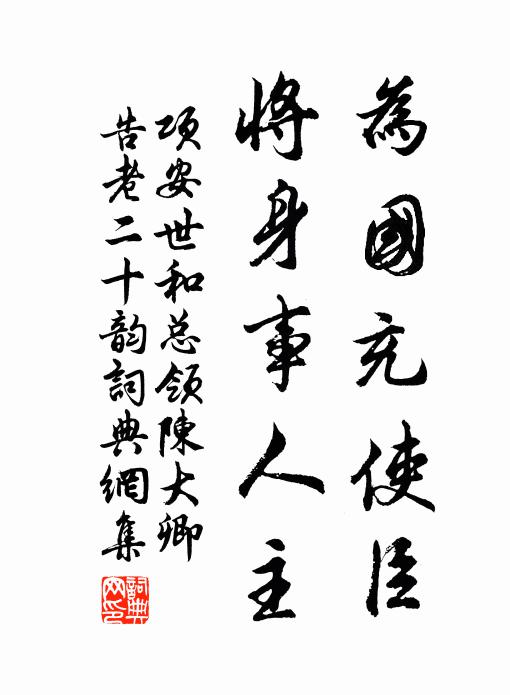 為國充使臣
將身事人主
項安世和总領陳大卿
告老二十韵詞典網集
詞典网印